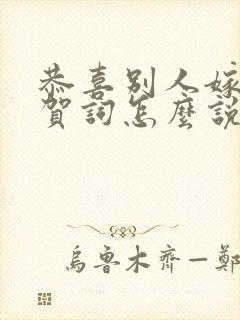 恭喜別人嫁
賀詞怎麼說
烏魯木齊—鄭